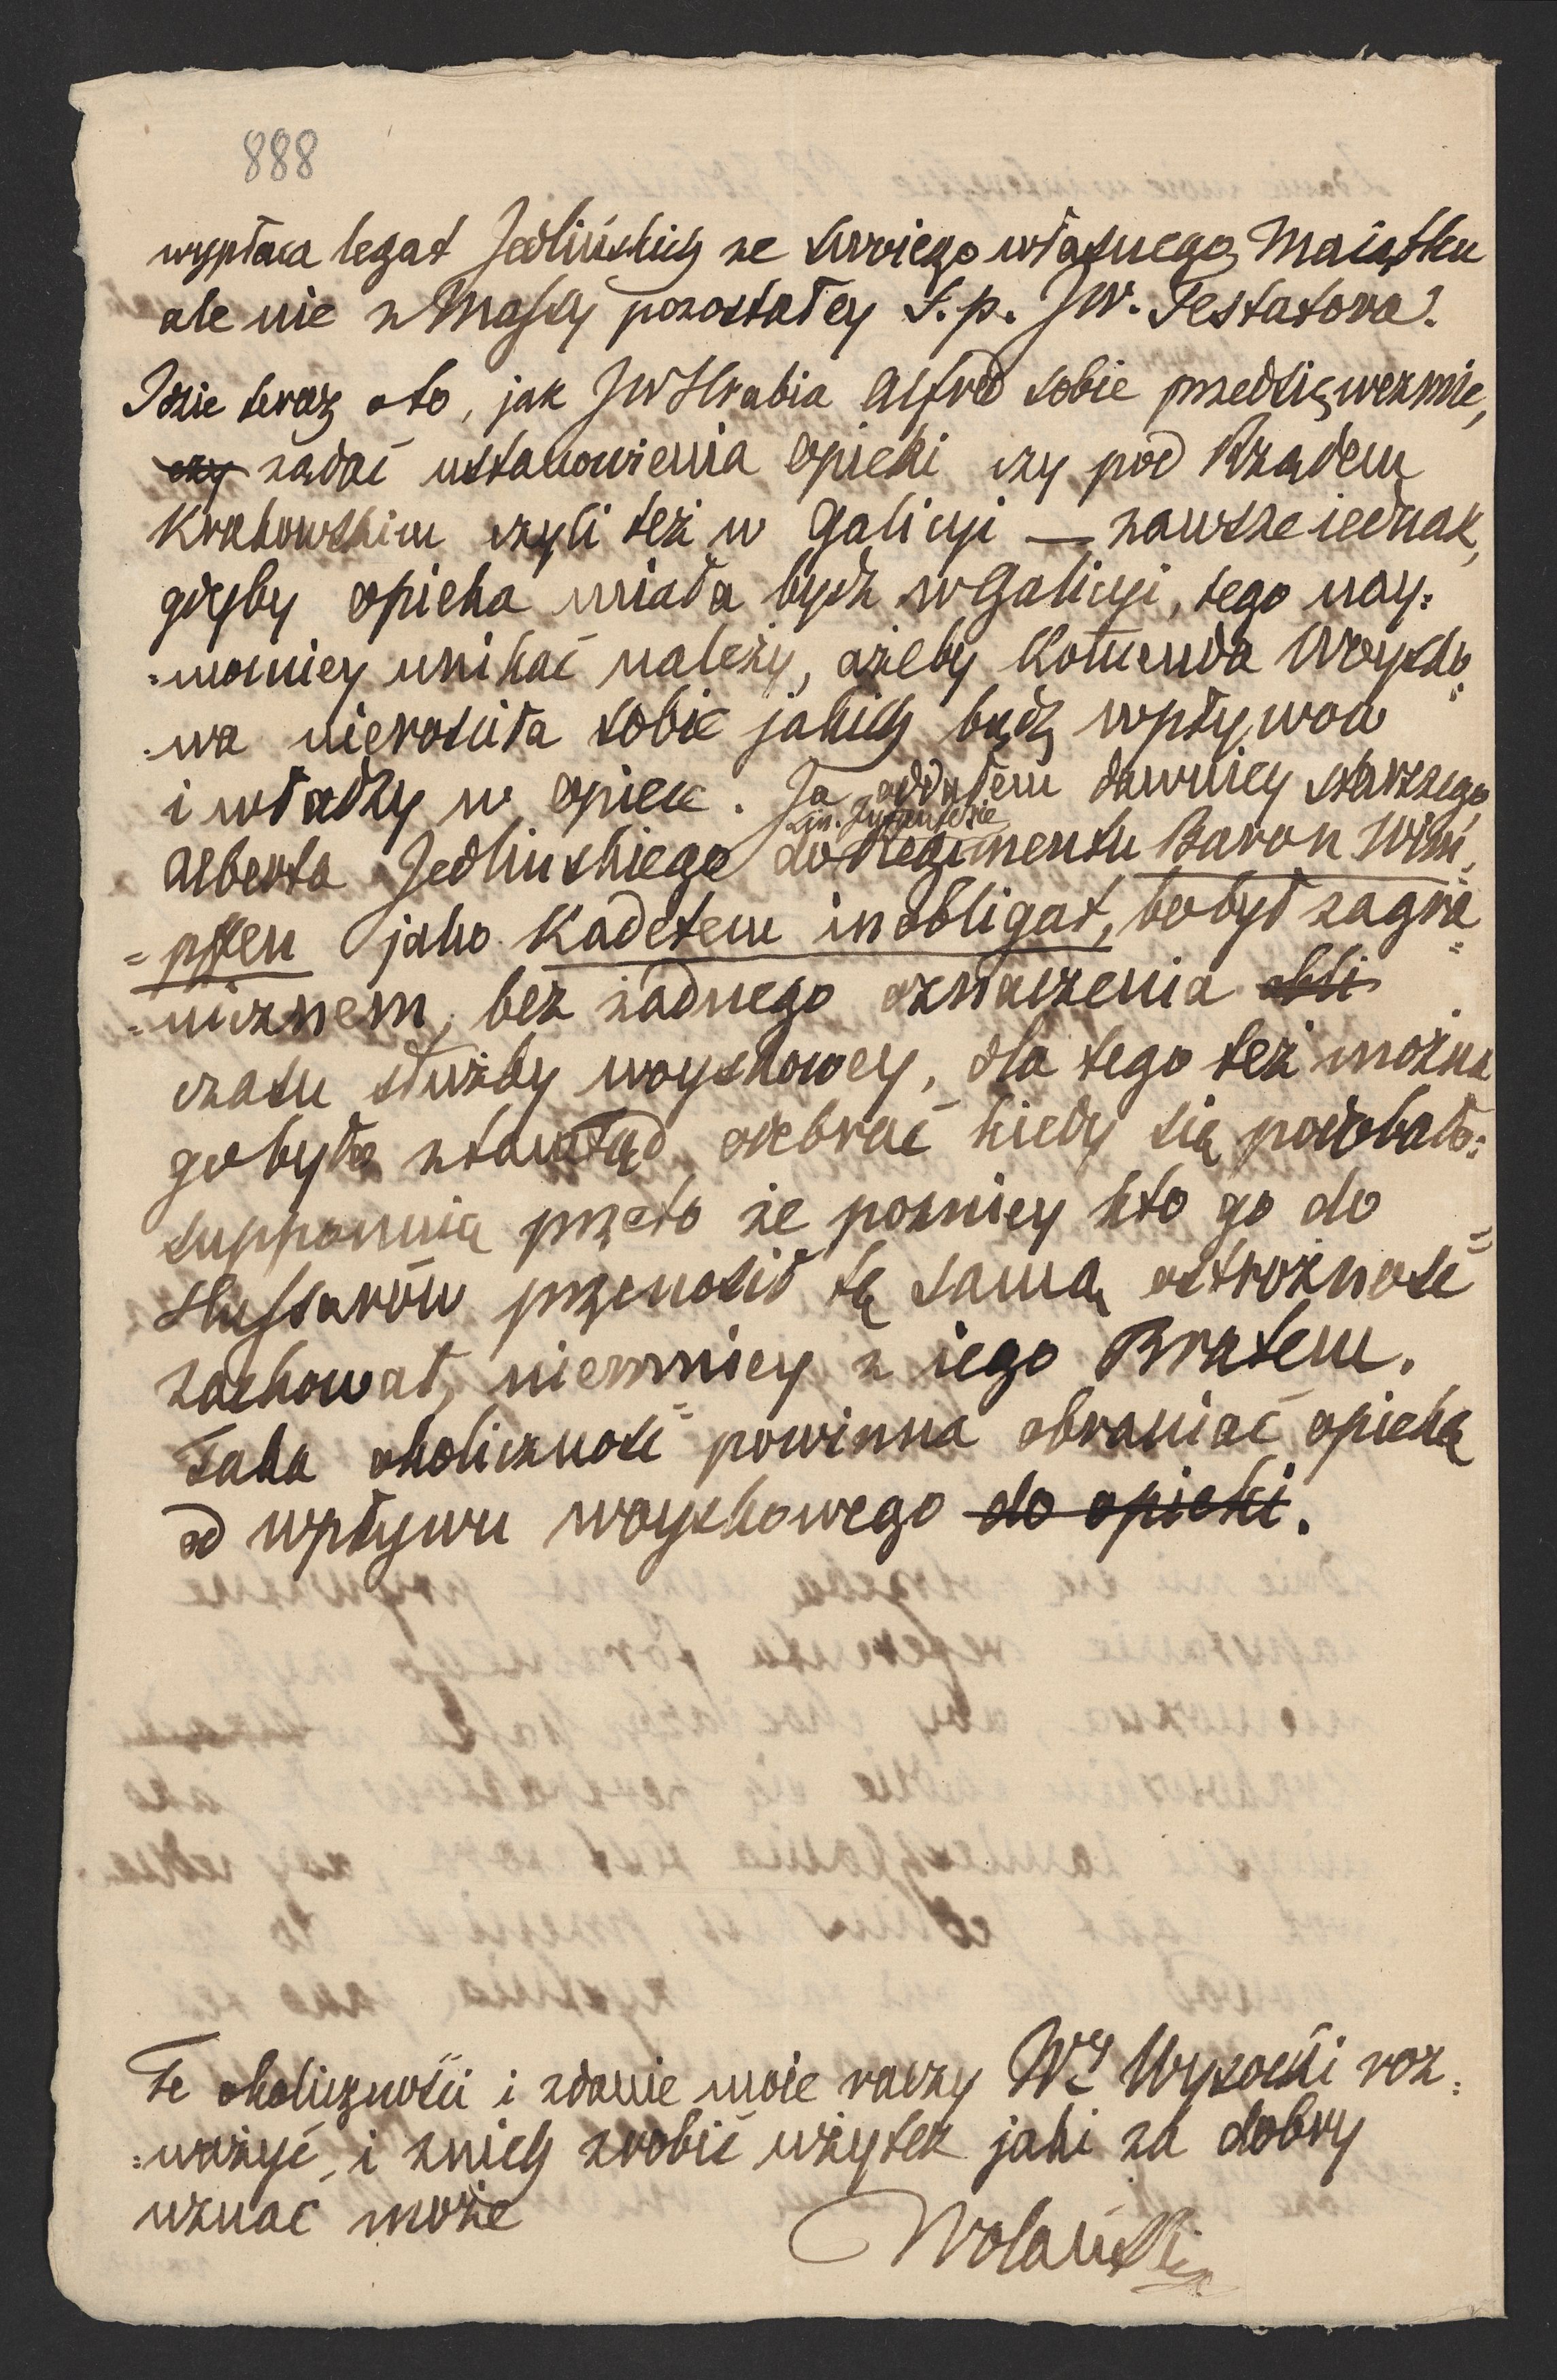 888
wypłaca legat Jedlińskich ze swoiego własnego Maiątku
ale nie z Massy pozostałey ś.p. JW. Testatora.
Idzie teraz oto, jak JWHrabia Alfred sobie przedsięwezmie,
czy żądać ustanowienia opieki czy pod Rządem
Krakowskim czyli też w Galicyi — zawsze iednak,
gdyby opieka miała bydź w Galicyi, tego nay:
:mocniey unikać należy, ażeby Komenda Woysko:
:wa nierościła sobie jakich bądź wpływów
i władzy w opiece. Ja oddałem dawniey starszego
Alberta Jedlinskiego do Regimentu Baron Wim=
=pffen jako Kadetem inobligat, bobył zagra=
=nicznem, bez żadnego oznaczenia obli
czasu służby woyskowey, dla tego też można
gobyło ztamtąd odebrać kiedy się podobało:
supponuię przeto że pozniey kto go do
Hussarów przenosił tę samą ostrożność
zachował, niemniey z iego Bratem.
Taka okoliczność powinna obraniać opiekę
od wpływu woyskowego do opieki.
Te okoliczności i zdanie moie raczy Wy Wysocki roz:
:ważyć, i znich zrobić użytek jaki za dobry
uznać może
Wolański